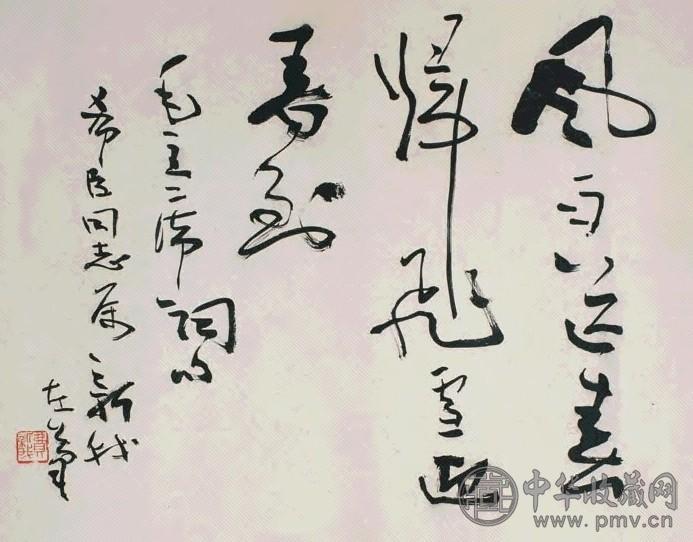 风雨送春
归飞雪迎
春到
毛主席词句
希臣同志属 新我
左笔
中华收藏网
www.pmv.cn